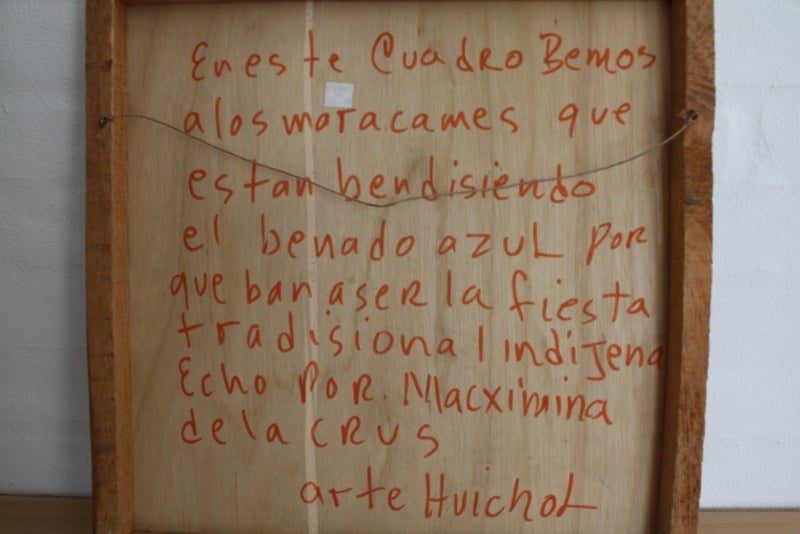 En este Cuadro Bemos
a los maracames que
estan bendisiendo
el benado azul por
que ban aser la fiesta
tradisional indijena
Echo por Macximina
de la CRUS
arte Huichol